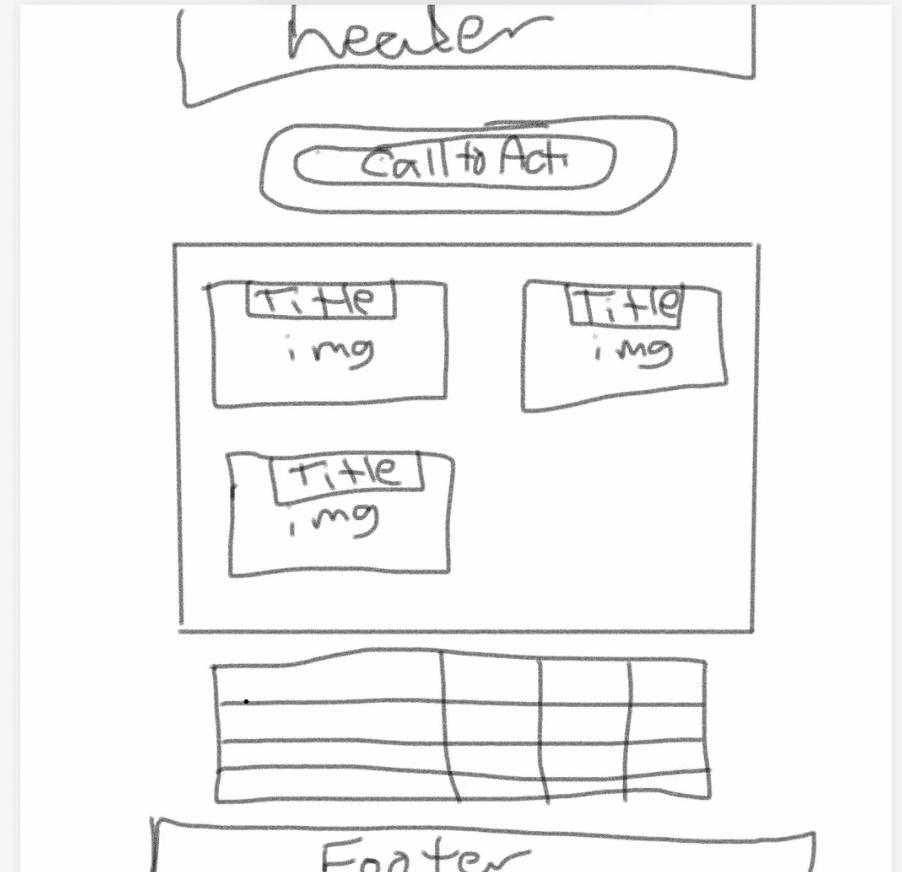 header
Call to Acti
Title
img
Title
img
Title
img
Footer